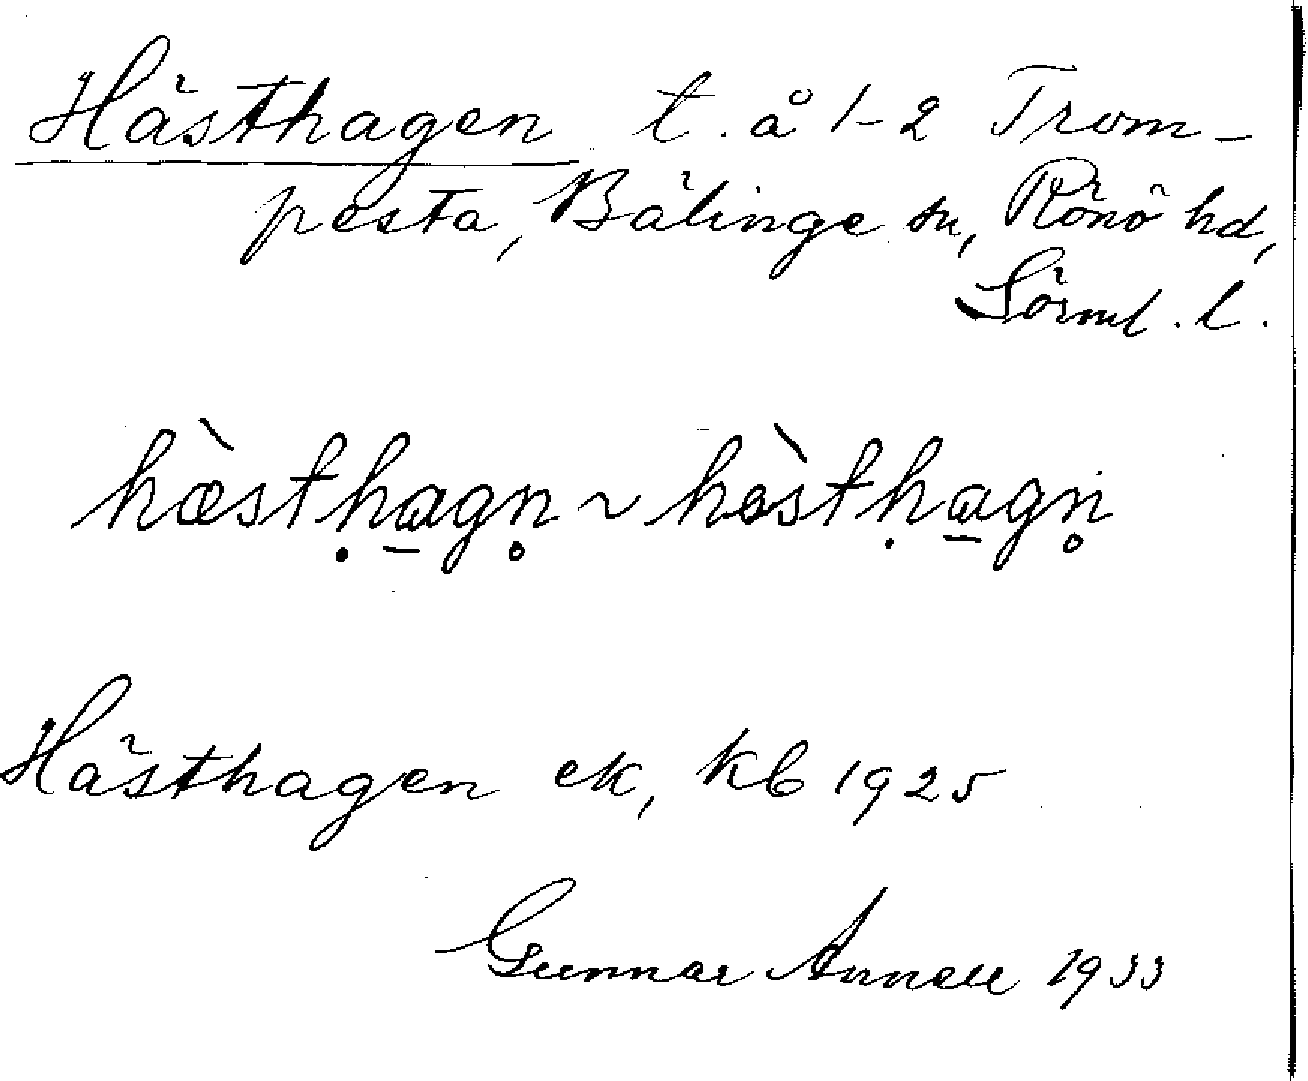 Hästhagen t. å 1-2 Trom-
pesta, Bälinge sn, Rönö hd,
Sörml. l.
hæ̀stḥa̲gn̥ ~ hèstḥa̲gn̥
Hästhagen ek, kb 1925
Gunnar Annell 1933